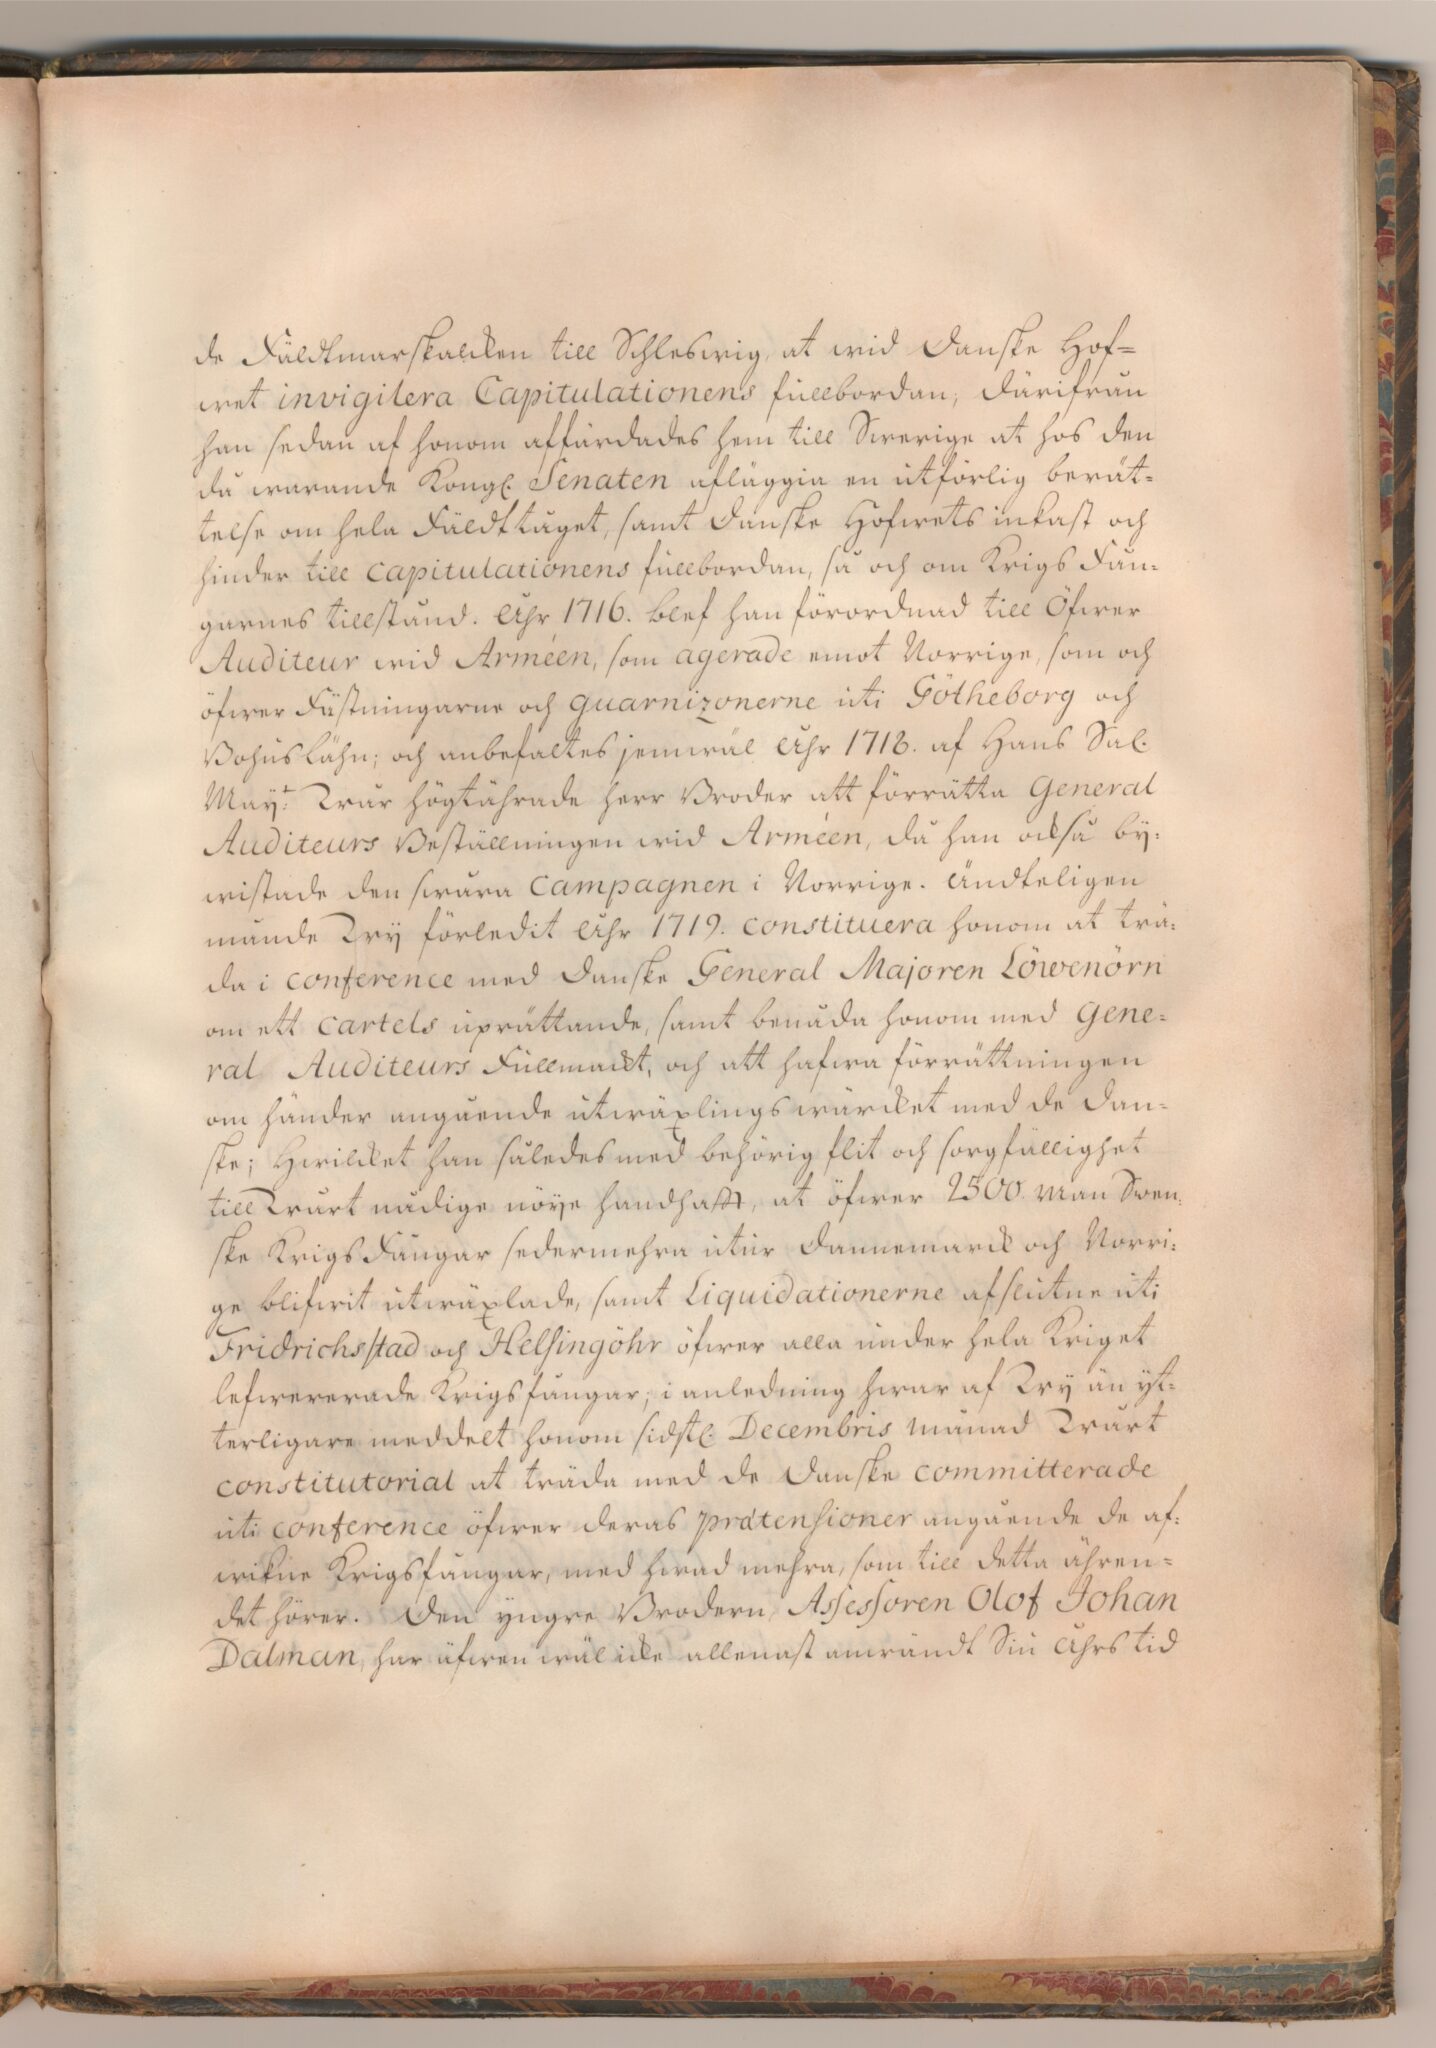 de Fäldtmarskalcken till Schleswig, at wid Danske Hof-
wet invigilera Capitulationens fullbordan, därifrån
han sedan af honom affärdades hem till Swerige at hos den
då warande Kongl. Senaten afläggia en utförlig berät-
telse om hela Fäldttåget, samt Danske Hofwets inkast och
hinder till capitulationens fullbordan, så och om Krigs Fån-
garnes tillstånd. Åhr 1716. blef han förordnad till Öfwer
Auditeur wid Arméen, som agerade emot Norrige, som och
öfwer Fästningarne och guarnizonerne uti Götheborg och
Bohuslähn; och anbefaltes jemwäl Åhr 1718. af Hans Sal.
Mayt. Wår högtährade herr Broder att förrätta General
Auditeurs Beställningen wid Arméen, då han också by-
wistade den swåra campagnen i Norrige. Ändteligen
månde Wy förledit Åhr 1719. constituera honom at trä-
da i conference med Danske General Majoren Löwenörn
om ett cartels uprättande, samt benåda honom med Gene-
ral Auditeurs Fullmackt, och att hafwa förrättningen
om händer angående utwäxlingswärcket med de Dan-
ske; Hwilcket han således med behörig flit och sorgfällighet
till Wårt nådige nöye handhaft, at öfwer 2500 Man Swen-
ske KrigsFångar sedermehra utur Dannemarck och Norri-
ge blifwit utwäxlade, samt Liquidationerne afslutne uti
Fridrichsstad och Helsingöhr öfwer alla under hela Kriget
lefwererade Krigsfångar; i anledning hwar af Wy än yt-
terligare meddelt honom sidstl. Decembris månad Wårt
constitutorial at träda med de Danske committerade
uti conference öfwer deras prætensioner angående de af-
wikne Krigsfångar, med hwad mehra, som till detta ähren-
det hörer. Den yngre Brodern, Assessoren Olof Johan
Dalman, har äfwen wäl icke allenast anwändt Sin Åhrs tid